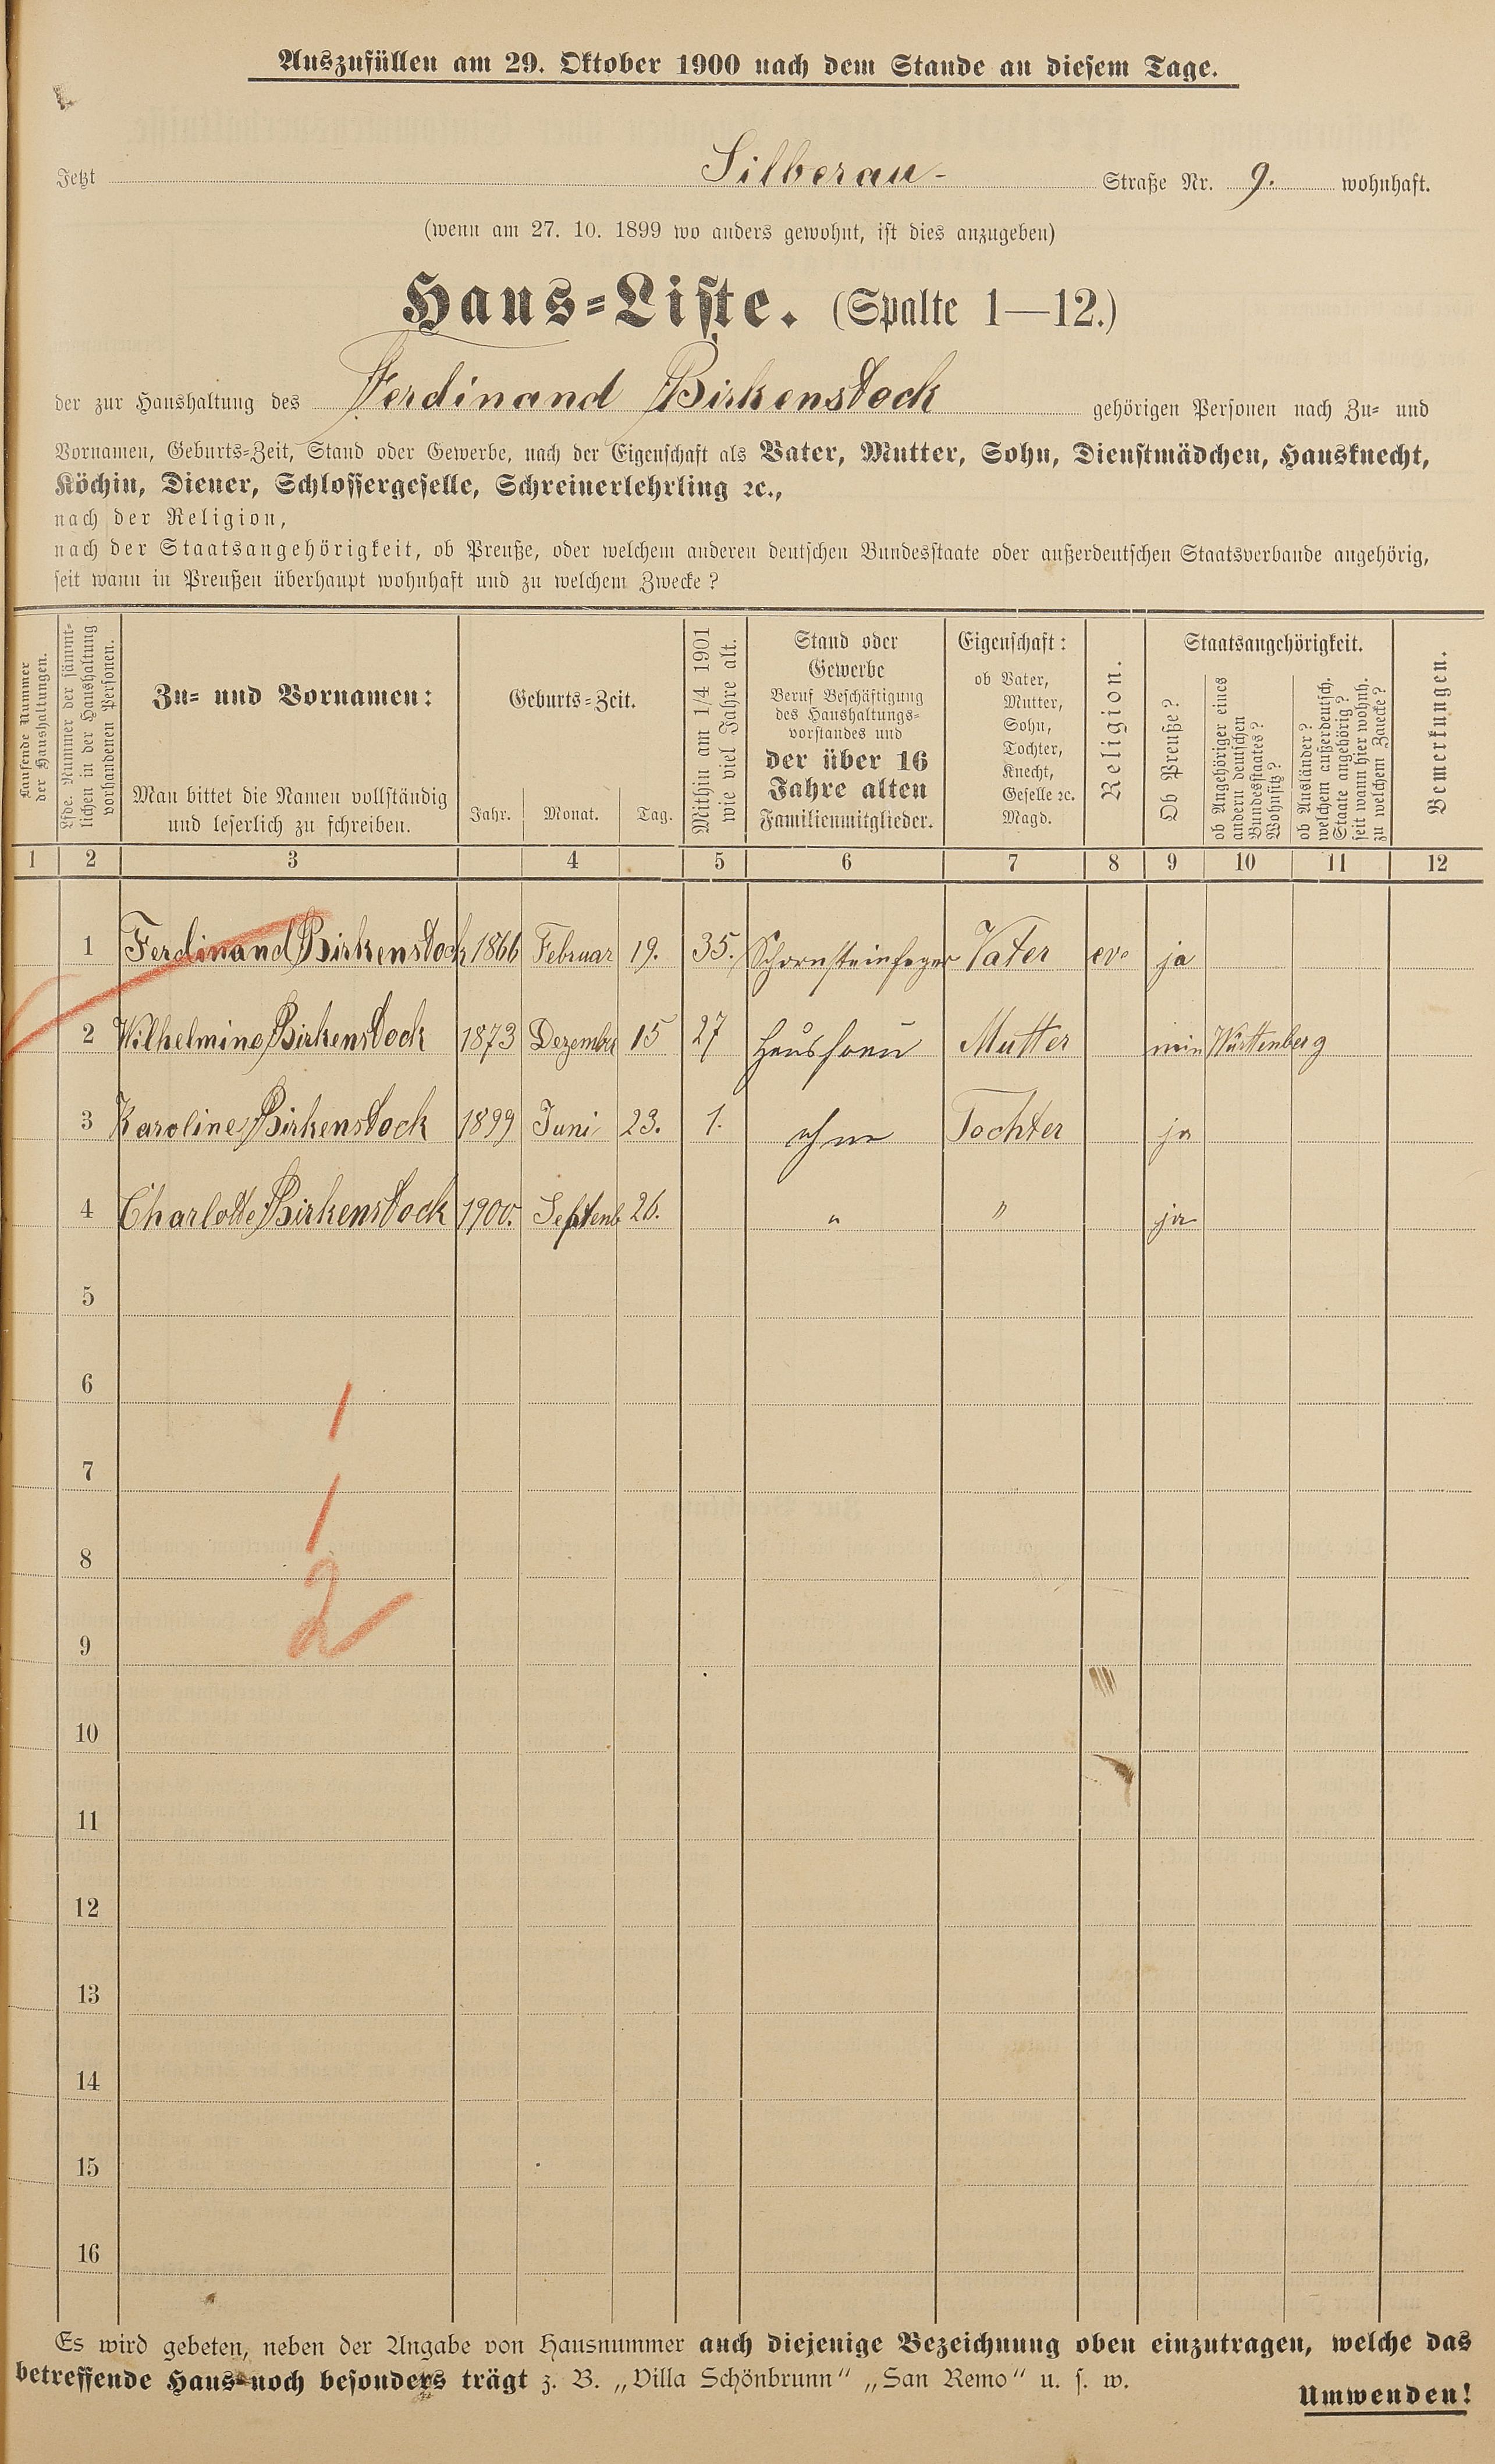 Auszufüllen am 29. Oktober 1900 nach dem Stande an diesem Tage.
Jetzt Silberau- Straße Nr. 9. wohnhaft.
(wenn am 27. 10. 1899 wo anders gewohnt, ist dies anzugeben)
Haus-Liste. (Spalte 1—12.)
der zur Haushaltung des Ferdinand Birkenstock gehörigen Personen nach Zu- und
Vornamen, Geburts-Zeit, Stand oder Gewerbe, nach der Eigenschaft als Vater, Mutter, Sohn, Dienstmädchen, Hausknecht,
Köchin, Diener, Schlossergeselle, Schreinerlehrling ꝛc.,
nach der Religion,
nach der Staatsangehörigkeit, ob Preuße, oder welchem anderen deutschen Bundesstaate oder außerdeutschen Staatsverbande angehörig,
seit wann in Preußen überhaupt wohnhaft und zu welchem Zwecke?
Laufende Nummer
der Haushaltungen.
Lfde. Nummer der sämmt-
lichen in der Haushaltung
vorhandenen Personen.
Zu- und Vornamen:
Man bittet die Namen vollständig
und leserlich zu schreiben.
Geburts-Zeit.
Jahr. Monat. Tag.
Mithin am 1/4 1901
wie viel Jahre alt.
Stand oder
Gewerbe
Beruf Beschäftigung
des Haushaltungs-
vorstandes und
der über 16
Jahre alten
Familienmitglieder.
Eigenschaft:
ob Vater,
Mutter,
Sohn,
Tochter,
Knecht,
Geselle ꝛc.
Magd.
Religion.
Staatsangehörigkeit.
Ob Preuße?
ob Angehöriger eines
andern deutschen
Bundesstaates?
Wohnsitz?
ob Ausländer?
welchem außerdeutsch.
Staate angehörig?
seit wann hier wohnh.
zu welchem Zwecke?
Bemerkungen.
1 2 3 4 5 6 7 8 9 10 11 12
1 Ferdinand Birkenstock 1866 Februar 19. 35. Schornsteinfeger Vater ev. ja
2 Wilhelmine Birkenstock 1873 Dezember 15 27 Hausfrau Mutter nein Württenberg
3 Karoline Birkenstock 1899 Juni 23. 1. ohne Tochter ja
4 Charlotte Birkenstock 1900. Septemb 26. " " ja
5
6
1
7
1
8
2
9
10
11
12
13
14
15
16
Es wird gebeten, neben der Angabe von Hausnummer auch diejenige Bezeichnung oben einzutragen, welche das
betreffende Haus noch besonders trägt z. B. „Villa Schönbrunn“ „San Remo“ u. s. w.
Umwenden!